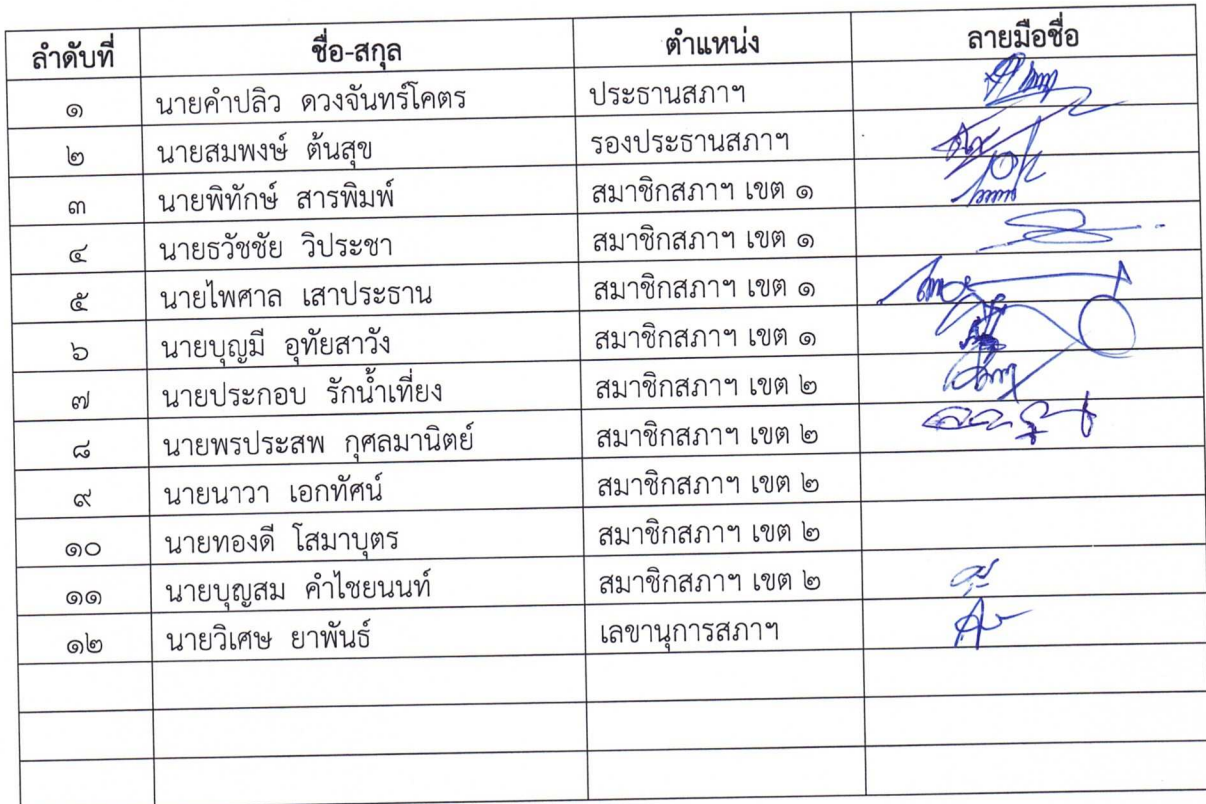 ลำดับที่ ชื่อ-สกุล ตำแหน่ง ลายมือชื่อ
๑ นายคำปลิว ดวงจันทร์โคตร ประธานสภาฯ
๒ นายสมพงษ์ ต้นสุข รองประธานสภาฯ
๓ นายพิทักษ์ สารพิมพ์ สมาชิกสภาฯ เขต ๑
๔ นายธวัชชัย วิประชา สมาชิกสภาฯ เขต ๑
๕ นายไพศาล เสาประธาน สมาชิกสภาฯ เขต ๑
๖ นายบุญมี อุทัยสาวัง สมาชิกสภาฯ เขต ๑
๗ นายประกอบ รักน้ำเที่ยง สมาชิกสภาฯ เขต ๒
๘ นายพรประสพ กุศลมานิตย์ สมาชิกสภาฯ เขต ๒
๙ นายนาวา เอกทัศน์ สมาชิกสภาฯ เขต ๒
๑๐ นายทองดี โสมาบุตร สมาชิกสภาฯ เขต ๒
๑๑ นายบุญสม คำไชยนนท์ สมาชิกสภาฯ เขต ๒
๑๒ นายวิเศษ ยาพันธ์ เลขานุการสภาฯ